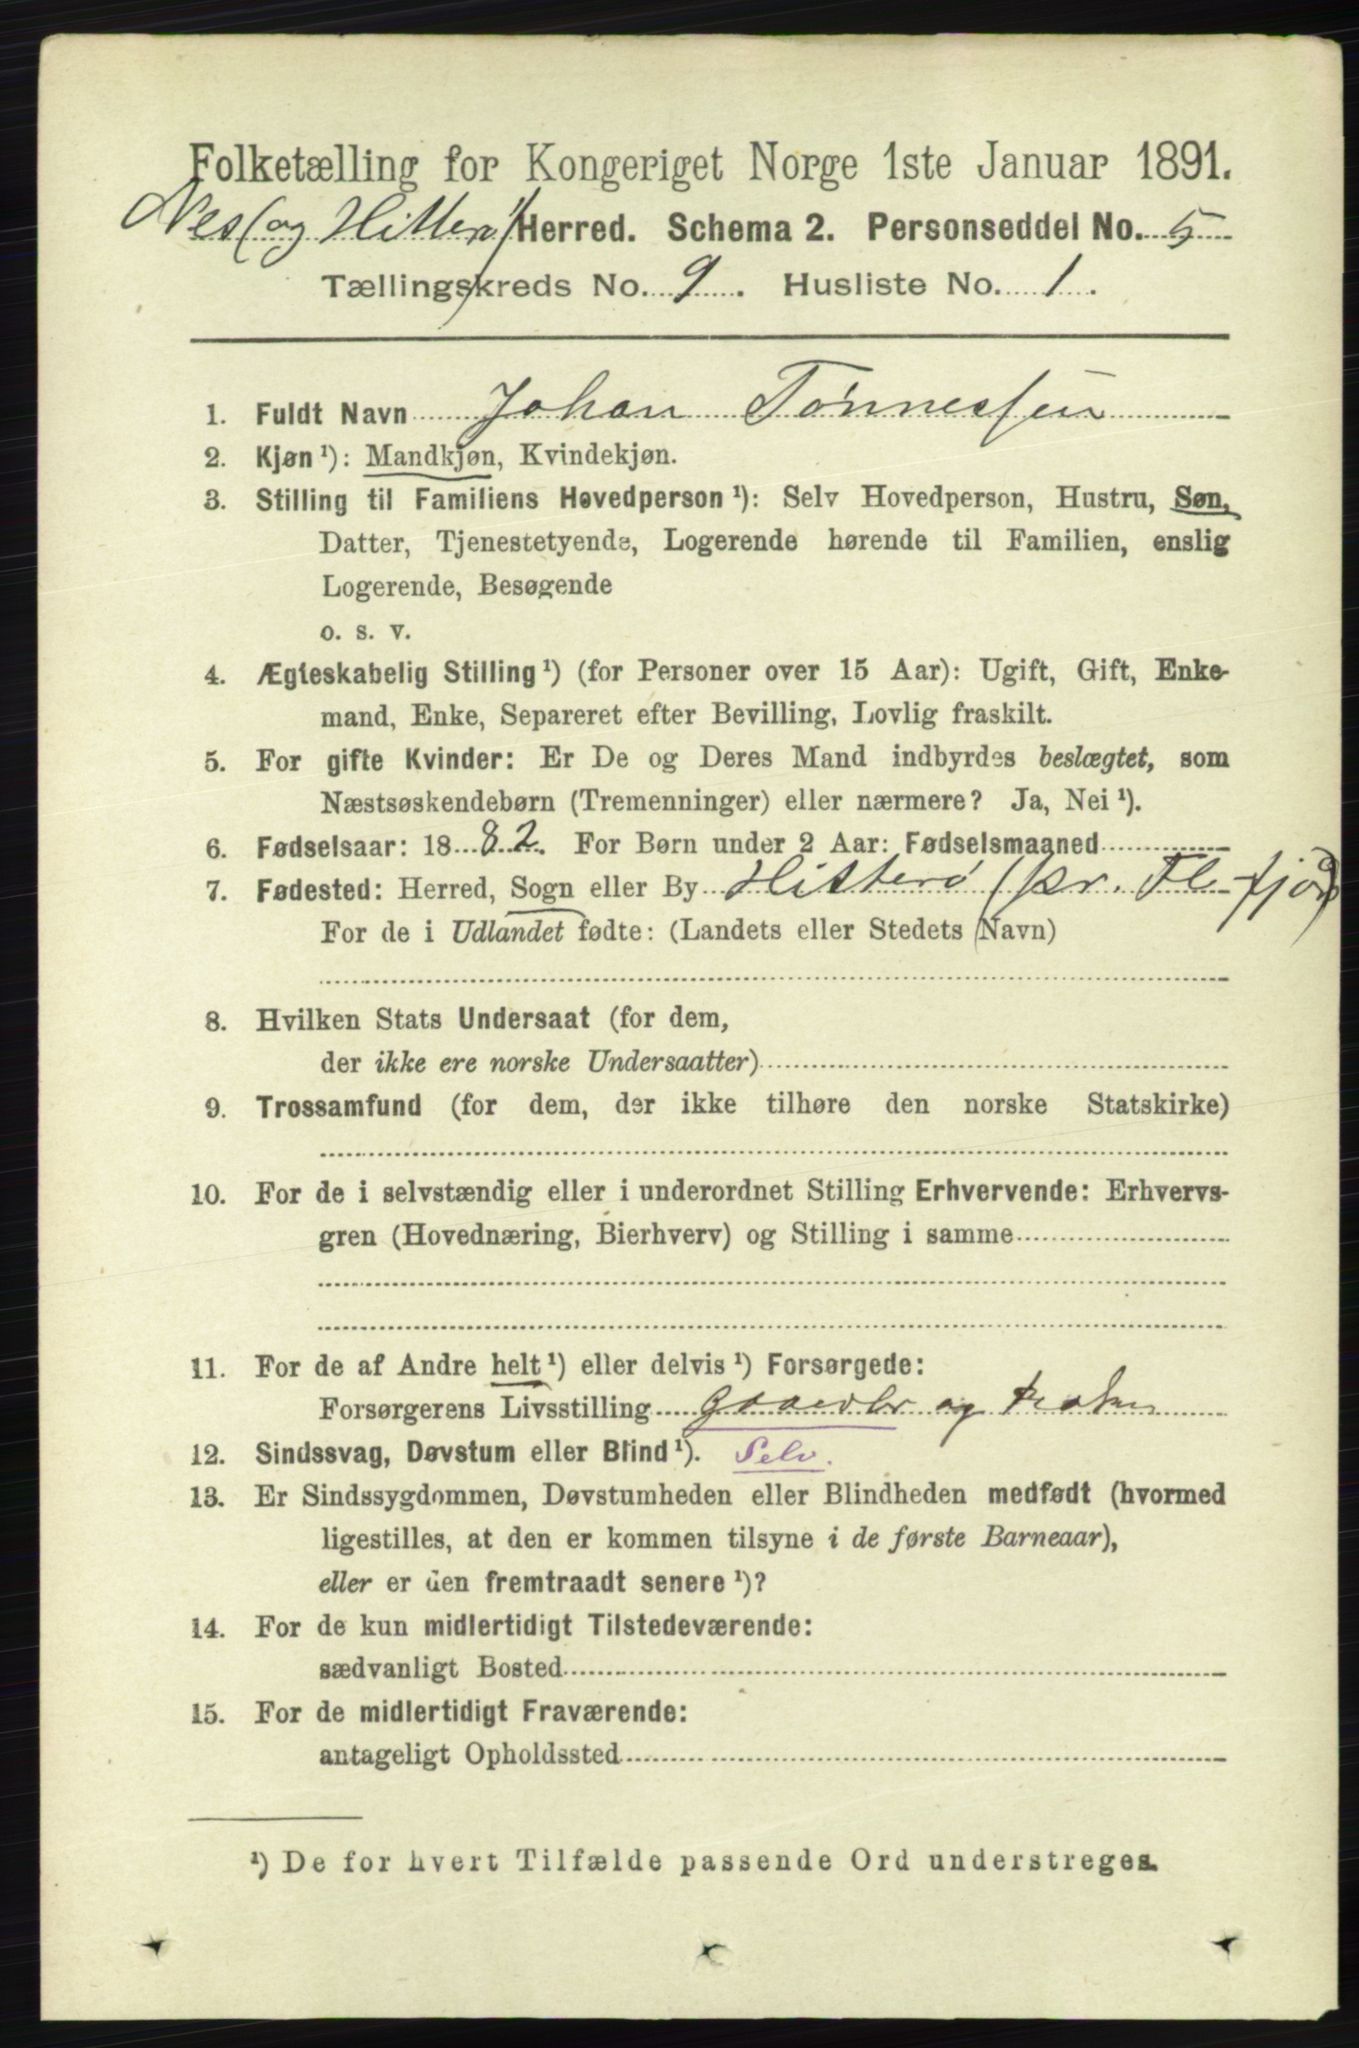 Folketælling for Kongeriget Norge 1ste Januar 1891.
Nes (og Hitterø) Herred. Schema 2. Personseddel No. 5
Tællingskreds No. 9. Husliste No. 1.
1. Fuldt Navn Johan Tønnessen
2. Kjøn ¹): Mandkjøn, Kvindekjøn.
3. Stilling til Familiens Hovedperson ¹): Selv Hovedperson, Hustru, Søn,
Datter, Tjenestetyende, Logerende hørende til Familien, enslig
Logerende, Besøgende
o. s. v.
4. Ægteskabelig Stilling ¹) (for Personer over 15 Aar): Ugift, Gift, Enke-
mand, Enke, Separeret efter Bevilling, Lovlig fraskilt.
5. For gifte Kvinder: Er De og Deres Mand indbyrdes beslægtet, som
Næstsøskendebørn (Tremenninger) eller nærmere? Ja, Nei ¹).
6. Fødselsaar: 1882. For Børn under 2 Aar: Fødselsmaaned
7. Fødested: Herred, Sogn eller By Hitterø (pr. Fl-fjord)
For de i Udlandet fødte: (Landets eller Stedets Navn)
8. Hvilken Stats Undersaat (for dem,
der ikke ere norske Undersaatter)
9. Trossamfund (for dem, der ikke tilhøre den norske Statskirke)
10. For de i selvstændig eller i underordnet Stilling Erhvervende: Erhvervs-
gren (Hovednæring, Bierhverv) og Stilling i samme
11. For de af Andre helt ¹) eller delvis ¹) Forsørgede:
Forsørgerens Livsstilling Gaardbr og
12. Sindssvag, Døvstum eller Blind ¹). Selv.
13. Er Sindssygdommen, Døvstumheden eller Blindheden medfødt (hvormed
ligestilles, at den er kommen tilsyne i de første Barneaar),
eller er den fremtraadt senere ¹)?
14. For de kun midlertidigt Tilstedeværende:
sædvanligt Bosted
15. For de midlertidigt Fraværende:
antageligt Opholdssted
¹) De for hvert Tilfælde passende Ord understreges.